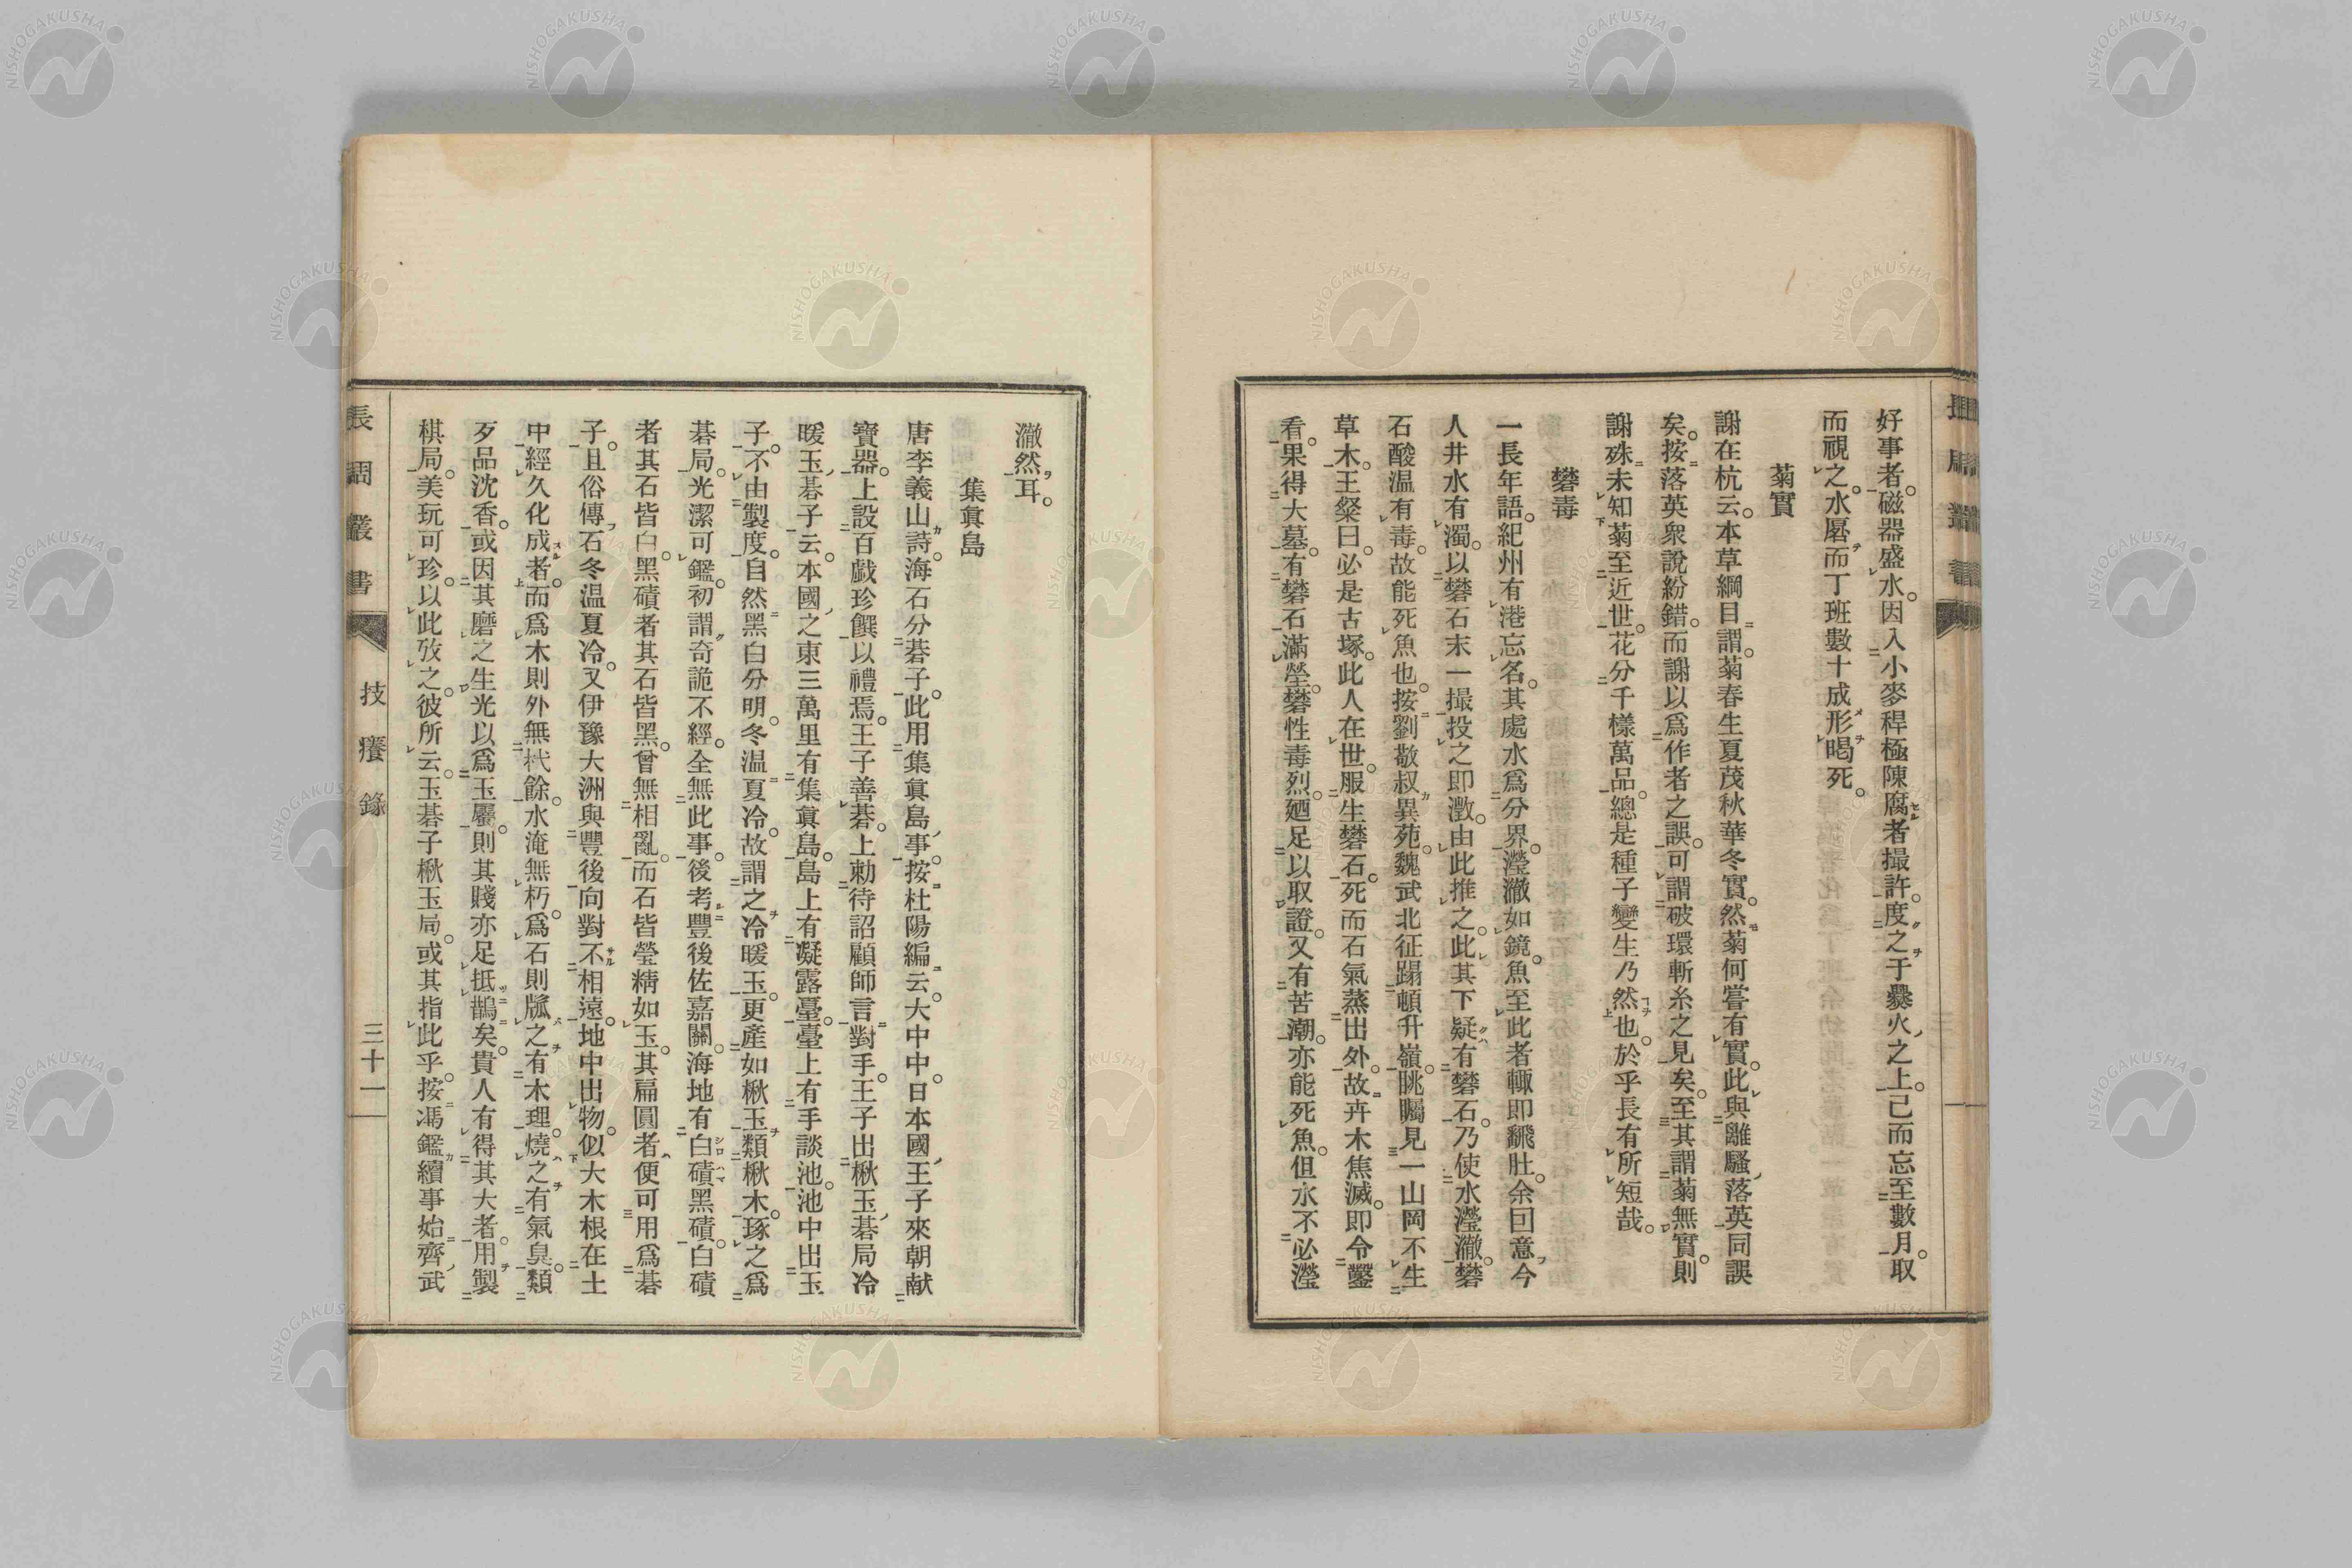 好事者。磁器盛水。因入小麥稈極陳腐者撮許。度之于爨火之上。已而忘至數月。取
而視之。水涸而丁班數十成形暍死。
菊實
謝在杭云。本草綱目謂。菊春生夏茂秋華冬實。然菊何嘗有實。此與離騷落英同誤
矣。按落英衆說紛錯。而謝以爲作者之誤。可謂破環斬糸之見矣。至其謂菊無實。則
謝殊未知菊至近世。花分千樣萬品。總是種子變生乃然也。於乎長有所短哉。
礬毒
一長年語。紀州有港忘名。其處水爲分界。瀅澈如鏡。魚至此者輙即飜肚。余囙意今
人井水有濁。以礬石末一撮投之即澂。由此推之。此其下疑有礬石。乃使水瀅澈。礬
石酸温有毒。故能死魚也。按劉敬叔異苑。魏武北征蹋頓升嶺。眺矚見一山岡不生
草木。王粲曰。必是古塚。此人在世。服生礬石。死而石氣蒸出外。故卉木焦滅。即令鑿
看。果得大墓。有礬石滿塋。礬性毒烈。廼足以取證。又有苦潮。亦能死魚。但水不必瀅
澈然耳。
集眞島
唐李義山詩。海石分碁子。此用集眞島事。按杜陽編云。大中中。日本國王子來朝献
寶器。上設百戯珍饌以禮焉。王子善碁。上勅待詔顧師言對手。王子出楸玉碁局冷
暖玉碁子云。本國之東三萬里有集眞島。島上有凝露臺。臺上有手談池。池中出玉
子。不由製度。自然黑白分明。冬温夏冷。故謂之冷暖玉。更產如楸玉類楸木。琢之爲
碁局。光潔可鑑。初謂奇詭不經。全無此事。後考豐後佐嘉關。海地有白磧黑磧。白磧
者其石皆白。黑磧者其石皆黑。曾無相亂。而石皆瑩精如玉。其扁圓者便可用爲碁
子。且俗傳石冬温夏冷。又伊豫大洲與豐後向對不相遠。地中出物。似大木根在土
中經久化成者。而爲木則外無杙餘。水淹無朽。爲石則牖之有木理。燒之有氣臭。類
歹品沈香。或因其磨之生光以爲玉屬。則其賤亦足抵鵲矣。貴人有得其大者。用製
棋局。美玩可珍。以此攷之。彼所云。玉碁子楸玉局。或其指此乎。按馮鑑續事始。齊武
長周叢書
技癢錄
三十一